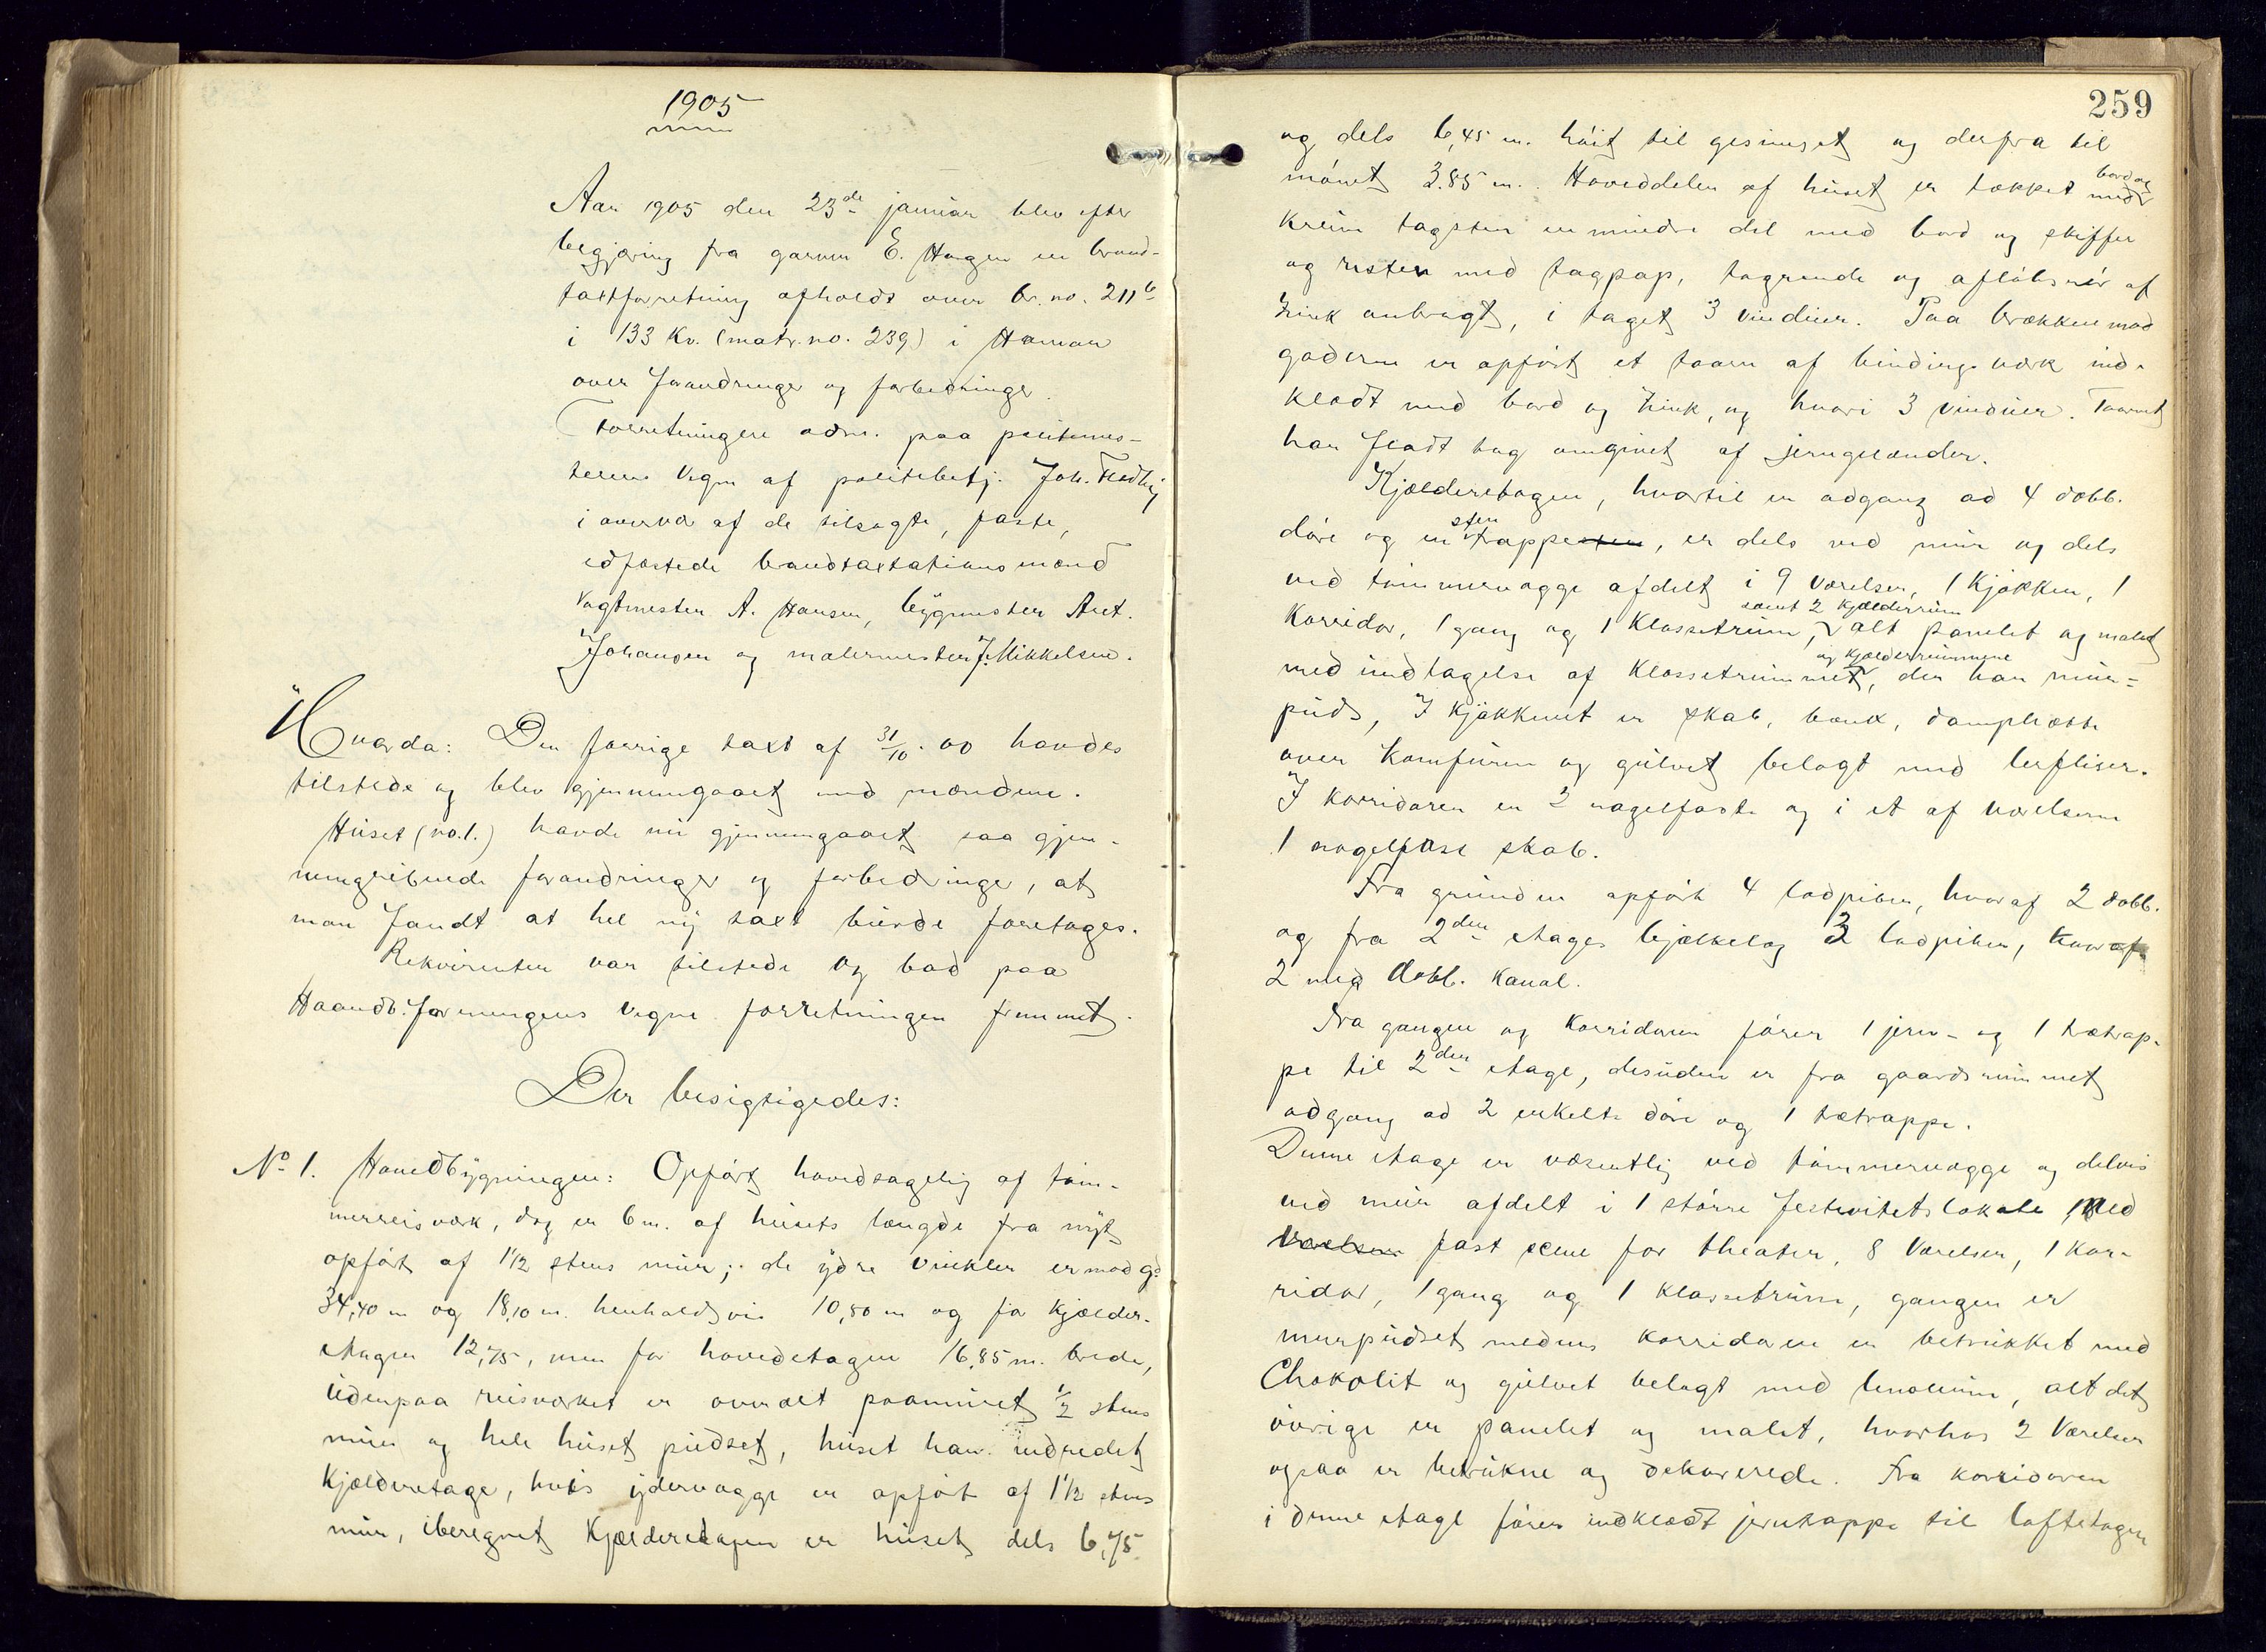 1905
Aar 1905 den 23de januar blev efter
begjæring fra garver E. Haagen en brand-
taxtforretning afholdt over br. no. 211b
i 133 Kv. (matr. no. 239) i Hamar
over forandringer og forbedringer.
Forretningen adm. paa politimes-
terens vegne af politibetj. Joh.
i overvær af de tilsagte, faste,
edfæstede brandtaxtationsmænd
Vagtmester A. Hansen, bygmester Ant.
Johansen og malermester J. Mikkelsen.
Hvorda: Den forrige taxt af 31/10.00 havdes
tilstede og blev gjennemgaaet med mændene.
Huset (no. 1.) havde nu gjennemgaaet saa gjen-
nemgribende forandringer og forbedringer, at
man fandt at hel ny taxt burde foretages.
Rekvirenten var tilstede og bad paa
Haandv. foreningens vegne forretningen fremmet.
Der besigtigedes:
No 1. Hovedbygningen: Opført hovedsagelig af tøm-
merreisværk, dog er 6 m. af husets længde fra nyt
opført af 1 1/2 stens mur; de ydre vinkler er mod gd
34,40 m og 18,10 m. henholdsvis 10,80 m og for kjælder-
etagen 12,75, men for hovedetagen 16,85 m. brede,
udenpaa reisværket er overalt paamuret 1/2 stens
mur og hele huset pudset, huset har indredet
Kjælderetage, hvis ydervægge er opført af 1 1/2 stens
mur, iberegnet Kjælderetagen er huset dels 6,75
259
og dels 6,45 m. høit til gesimset og derfra til
mønet 3.85 m. Hoveddelen af huset er tækket med bord og
krum tagsten en mindre del med bord og skiffer
og resten med tagpap, tagrende og afløbsrør af
zink anbragt, i taget 3 vinduer. Paa brækken mod
gaderne er opført et taarn af bindingsværk ind-
klædt med bord og zink, og hvori 3 vinduer. Taarnet
har fladt tag omgivet af jerngelænder.
Kjælderetagen, hvortil er adgang ad 4 dobb.
døre og en sten trappe, er dels ved mur og dels
ved tømmervægge afdelt i 9 værelser, 1 Kjøkken, 1
Korridor, 1 gang og 1 Klossetrum, samt 2 kjælderrum alt panelet og malet
med undtagelse af Klossetrummet og kjælderrummene, der har mur-
puds, I kjøkkenet er skab, bænk, damphætte
over Komfuren og gulvet belagt med lerfliser.
I korridoren er 2 nagelfaste og i et af værelserne
1 nagelfast skab.
Fra grunden opført 4 ladpiber, hvoraf 2 dobb.
og fra 2den etages bjælkelag 3 ladpiber, hvoraf
2 med dobb. Kanal.
Fra gangen og Korridoren fører 1 jern- og 1 trætrap-
pe til 2den etage, desuden er fra gaardsrummet
adgang ad 2 enkelte døre og 1 trætrappe.
Denne etage er væsentlig ved tømmervægge og delvis
ved mur afdelt i 1 større festivitetslokale med
Værelser fast scene for theater, 8 Værelser, 1 Kor-
ridor, 1 gang og 1 klossetrum, gangen er
murpudset medens korridoren er betrukket med
Chokolit og gulvet belagt med linoleum, alt det
øvrige er panelet og malet, hvorhos 2 Værelser
ogsaa er betrukne og dekorerede. Fra korridoren
i denne etage fører indklædt jerntrappe til loftetagen